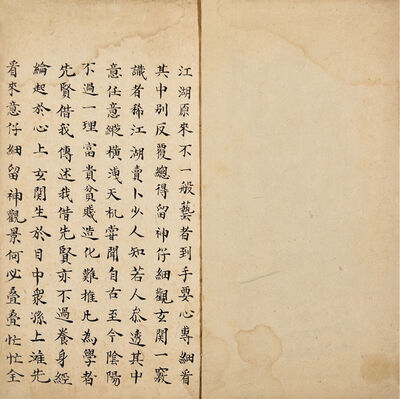 江湖原來不一般藝者到手要心專細看
其中別反覆總得留神仔細觀玄關一竅
識者稀江湖賣卜少人知若人叅透其中
意任意縱橫洩天机甞聞自古至今陰陽
不過一理富貴貧賤造化難推凡為學者
先賢借我傳述我借先賢亦不過養身經
綸起於心上玄關生於目中衆孫上灘先
看來意仔細留神觀景何必疊疊忙忙全